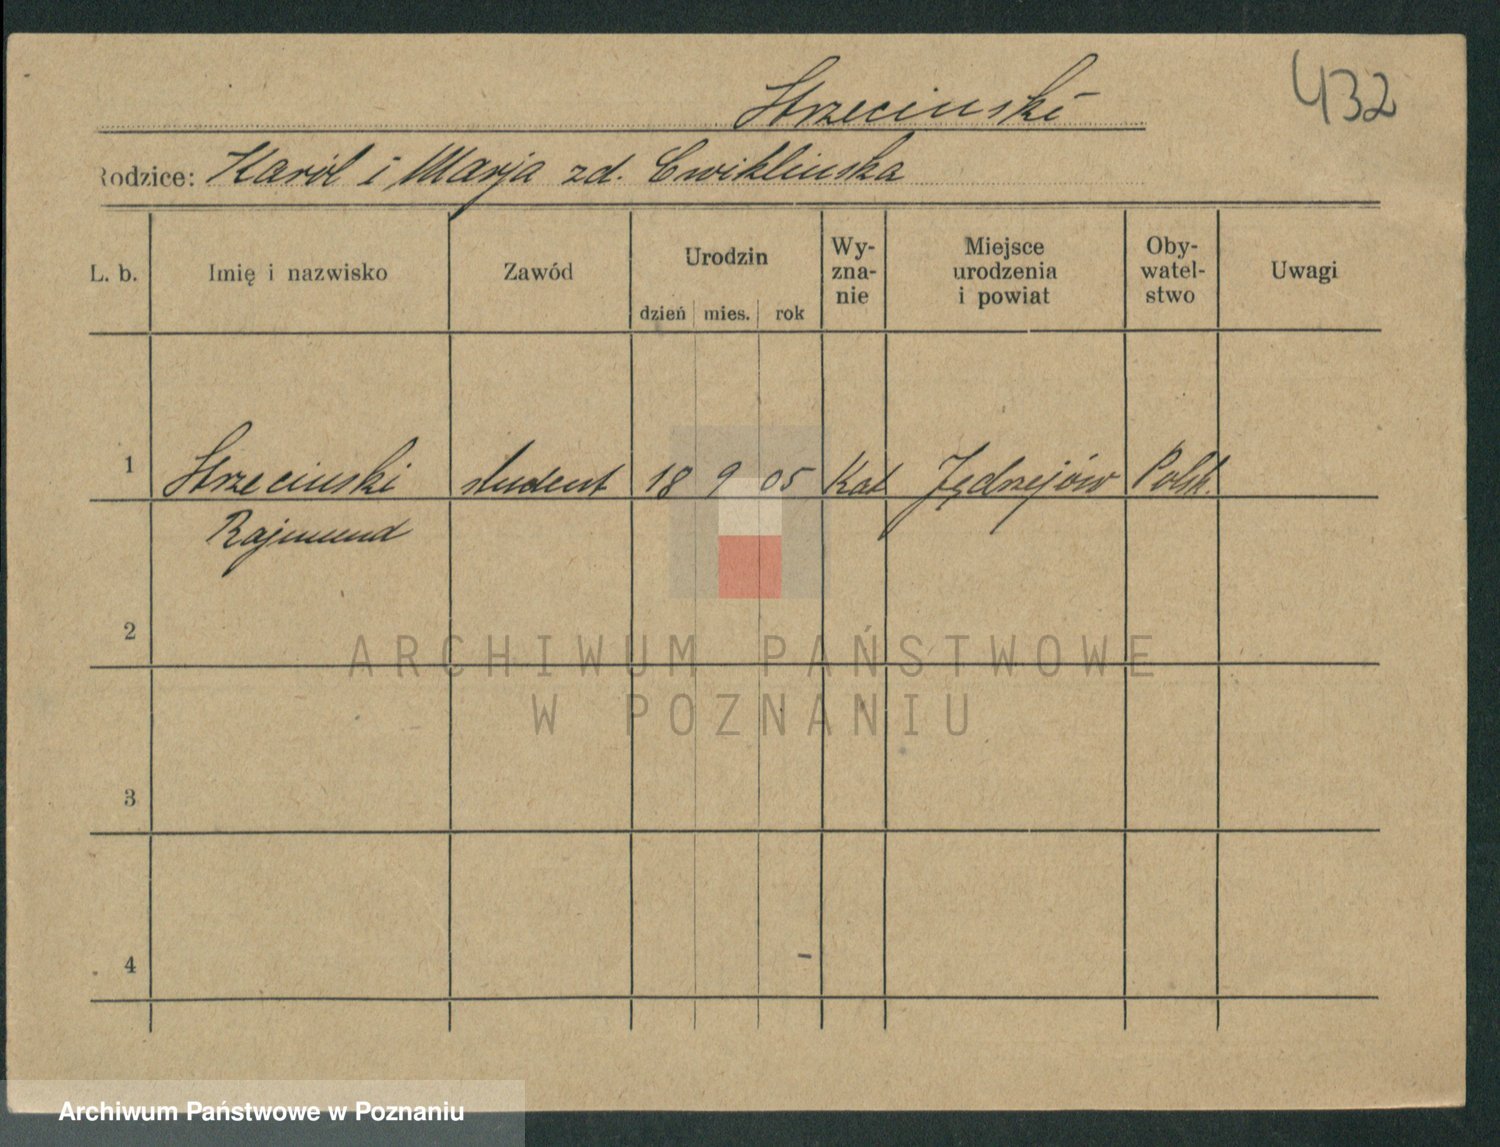 Strzecinski 432
Rodzice: Karól i Marja zd. Cwiklinska
L. b. Imię i nazwisko Zawód Urodzin dzień mies. rok Wy-zna-nie Miejsce urodzenia i powiat Oby-watel-stwo Uwagi
1 Strzecinski student 18 9 05 Kat Jędrzejów Polsk.
Rajmund
2
ARCHIWUM PAŃSTWOWE
W POZNANIU
3
4
Archiwum Państwowe w Poznaniu